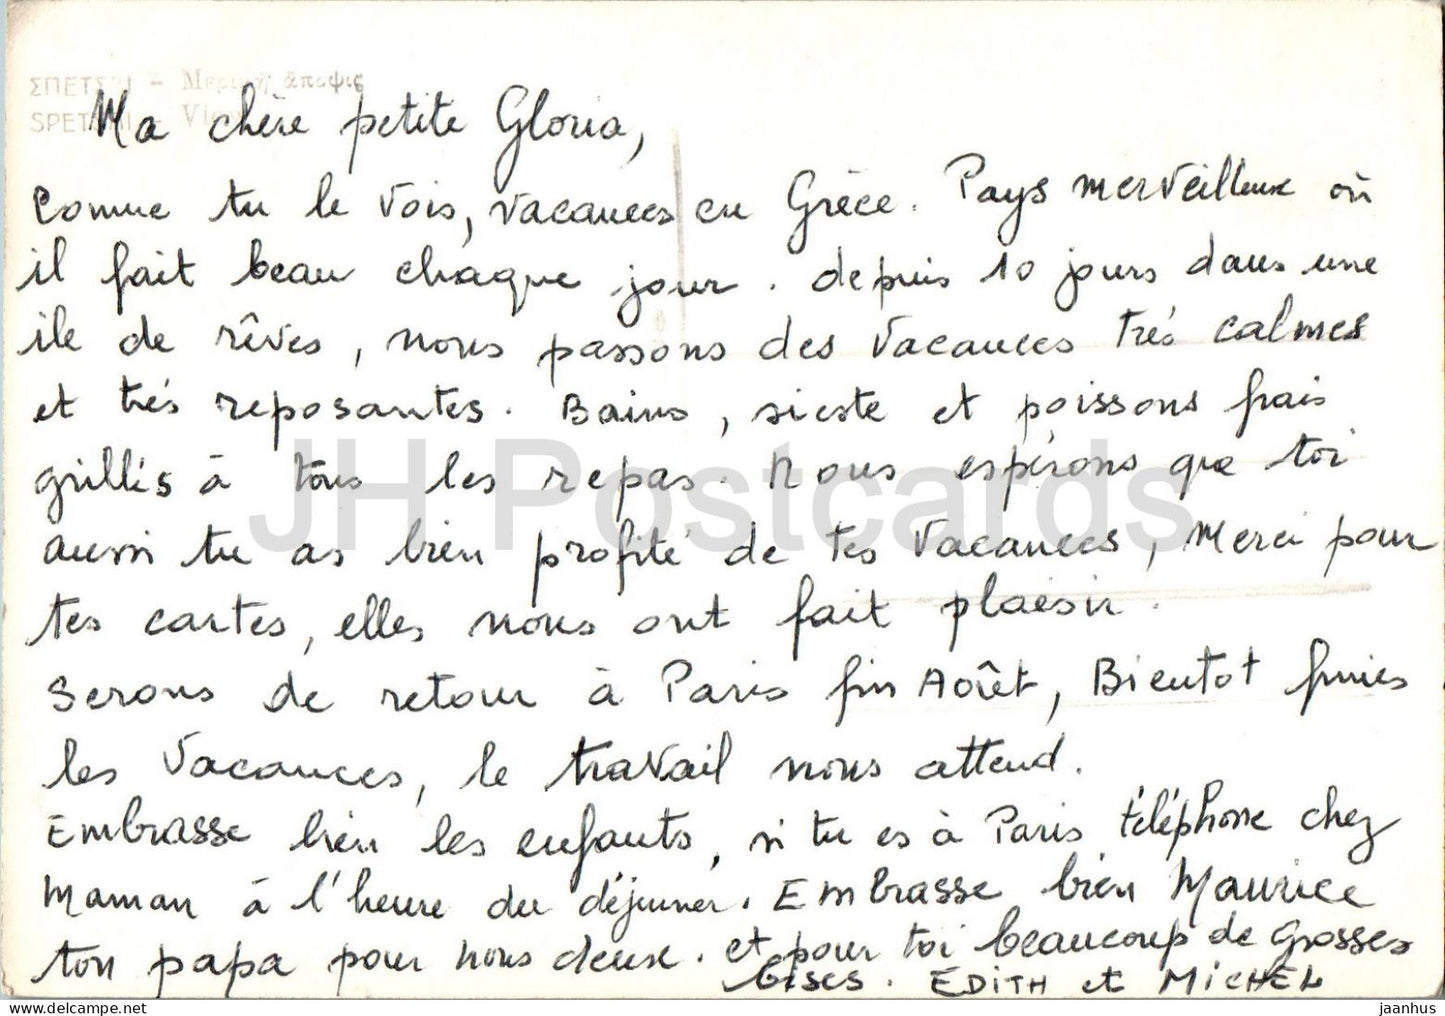 ΣΠΕΤΣΑΙ - Μερική ἄποψις
SPETSAI -
Ma chère petite Gloria,
Comme tu le vois, vacances en Grèce. Pays merveilleux où
il fait beau chaque jour. depuis 10 jours dans une
ile de rêves, nous passons des vacances très calmes
et très reposantes. Bains, sieste et poissons frais
grillés à tous les repas. Nous espérons que toi
aussi tu as bien profité de tes vacances, Merci pour
tes cartes, elles nous ont fait plaisir.
Serons de retour à Paris fin Aoùt, Bientot finies
les vacances, le travail nous attend.
Embrasse bien les enfants, si tu es à Paris téléphone chez
Maman à l'heure du déjeuner. Embrasse bien Maurice
ton papa pour nous deux. et pour toi beaucoup de Grosses
bises. EDITH et MICHEL
JH Postcards
hippostcard.com/store
jaanhus